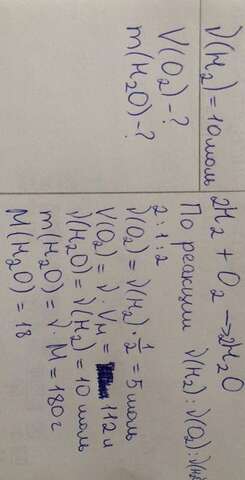 ν(H₂)=10моль
V(O₂)-?
m(H₂O)-?
2H₂ + O₂ → 2H₂O
По реакции ν(H₂):ν(O₂):ν(H₂
2:1:2
ν(O₂) = ν(H₂)·1/2 = 5 моль
V(O₂) = ν·Vм = 112 л
ν(H₂O) = ν(H₂) = 10 моль
m(H₂O) = ν·M = 180г
M(H₂O) = 18